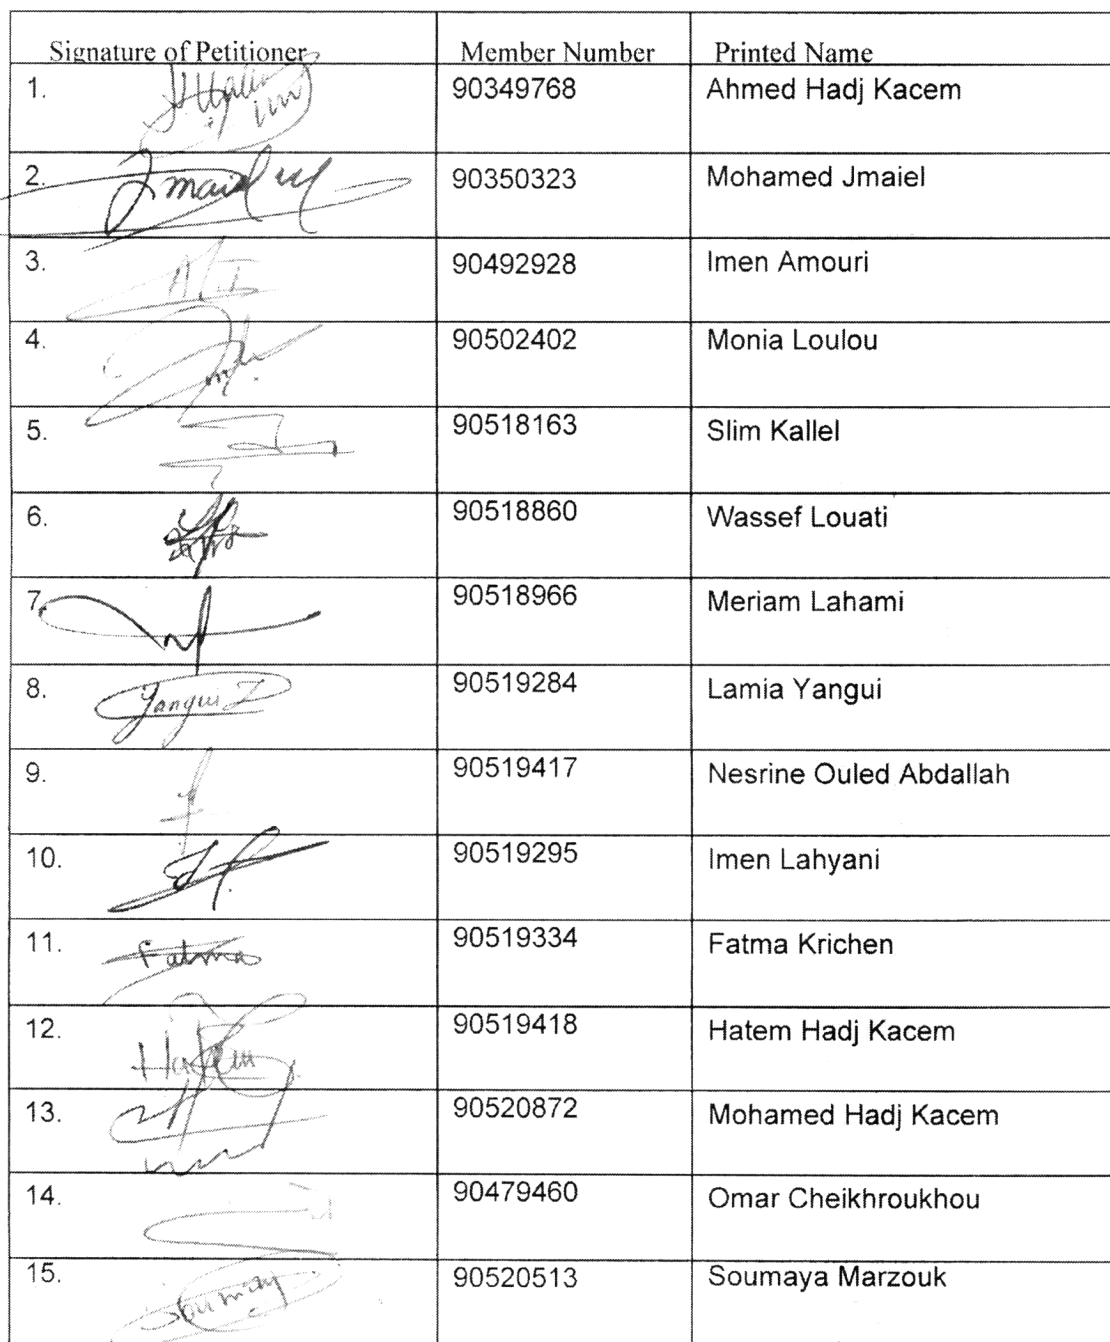 Signature of Petitioner Member Number Printed Name
1. 90349768 Ahmed Hadj Kacem
2. Jmaiel 90350323 Mohamed Jmaiel
3. 90492928 Imen Amouri
4. 90502402 Monia Loulou
5. 90518163 Slim Kallel
6. 90518860 Wassef Louati
7. 90518966 Meriam Lahami
8. Yangui L 90519284 Lamia Yangui
9. 90519417 Nesrine Ouled Abdallah
10. 90519295 Imen Lahyani
11. Fatma 90519334 Fatma Krichen
12. Hatem 90519418 Hatem Hadj Kacem
13. 90520872 Mohamed Hadj Kacem
14. 90479460 Omar Cheikhroukhou
15. Soumay 90520513 Soumaya Marzouk